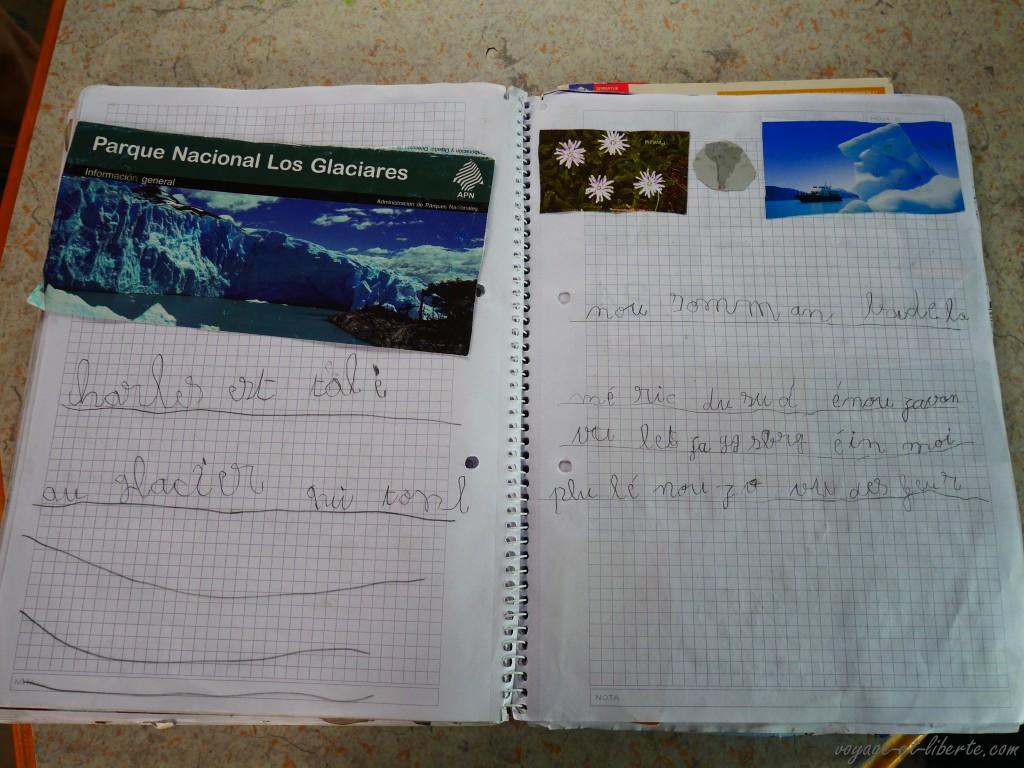 Parque Nacional Los Glaciares
Información general
APN
Administración de Parques Nacionales
charles est talé
au glacier qui tonl
NOTA
HOJA N
nou somm an
mé ric du sud énou zavon
vu les éin moi
plu lé nou za vu des fleur
NOTA
voyage-et-liberte.com